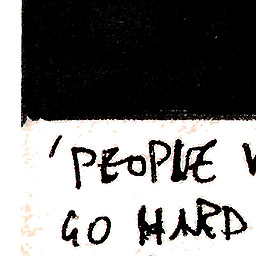 'PEOPLE
GO HARD